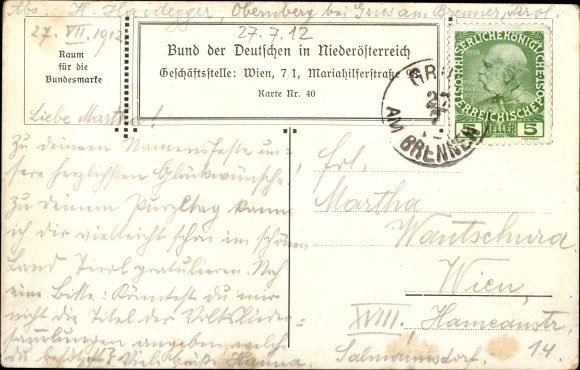 Abs. H. Haidegger, Obernberg bei Gries am Brenner, Tirol.
27. VII. 1912
27.7.12
Raum
für die
Bundesmarke
Bund der Deutschen in Niederösterreich
Geschäftsstelle: Wien, 7/1, Mariahilferstraße 98
Karte Nr. 40
KAISERLICHE KÖNIGLICHE
ÖSTERREICHISCHE POST
5 HELLER 5
GRIES
AM BRENNER
Liebe Martha!
Zu deinem Namensfeste un-
sere herzlichsten Glückwünsche,
zu deinem Purzltag kann
ich dir vielleicht schon im schönen
Land Tirol gratulieren. Noch
eine Bitte: Könntest du mir
nicht die Titel der Volkslieder-
sammlungen angeben, welche
du besitzest? Viele Grüße Hanna.
Frl.
Martha
Wantschura
Wien,
XVIII, Hameaustr.
Salmannsdorf. 14.